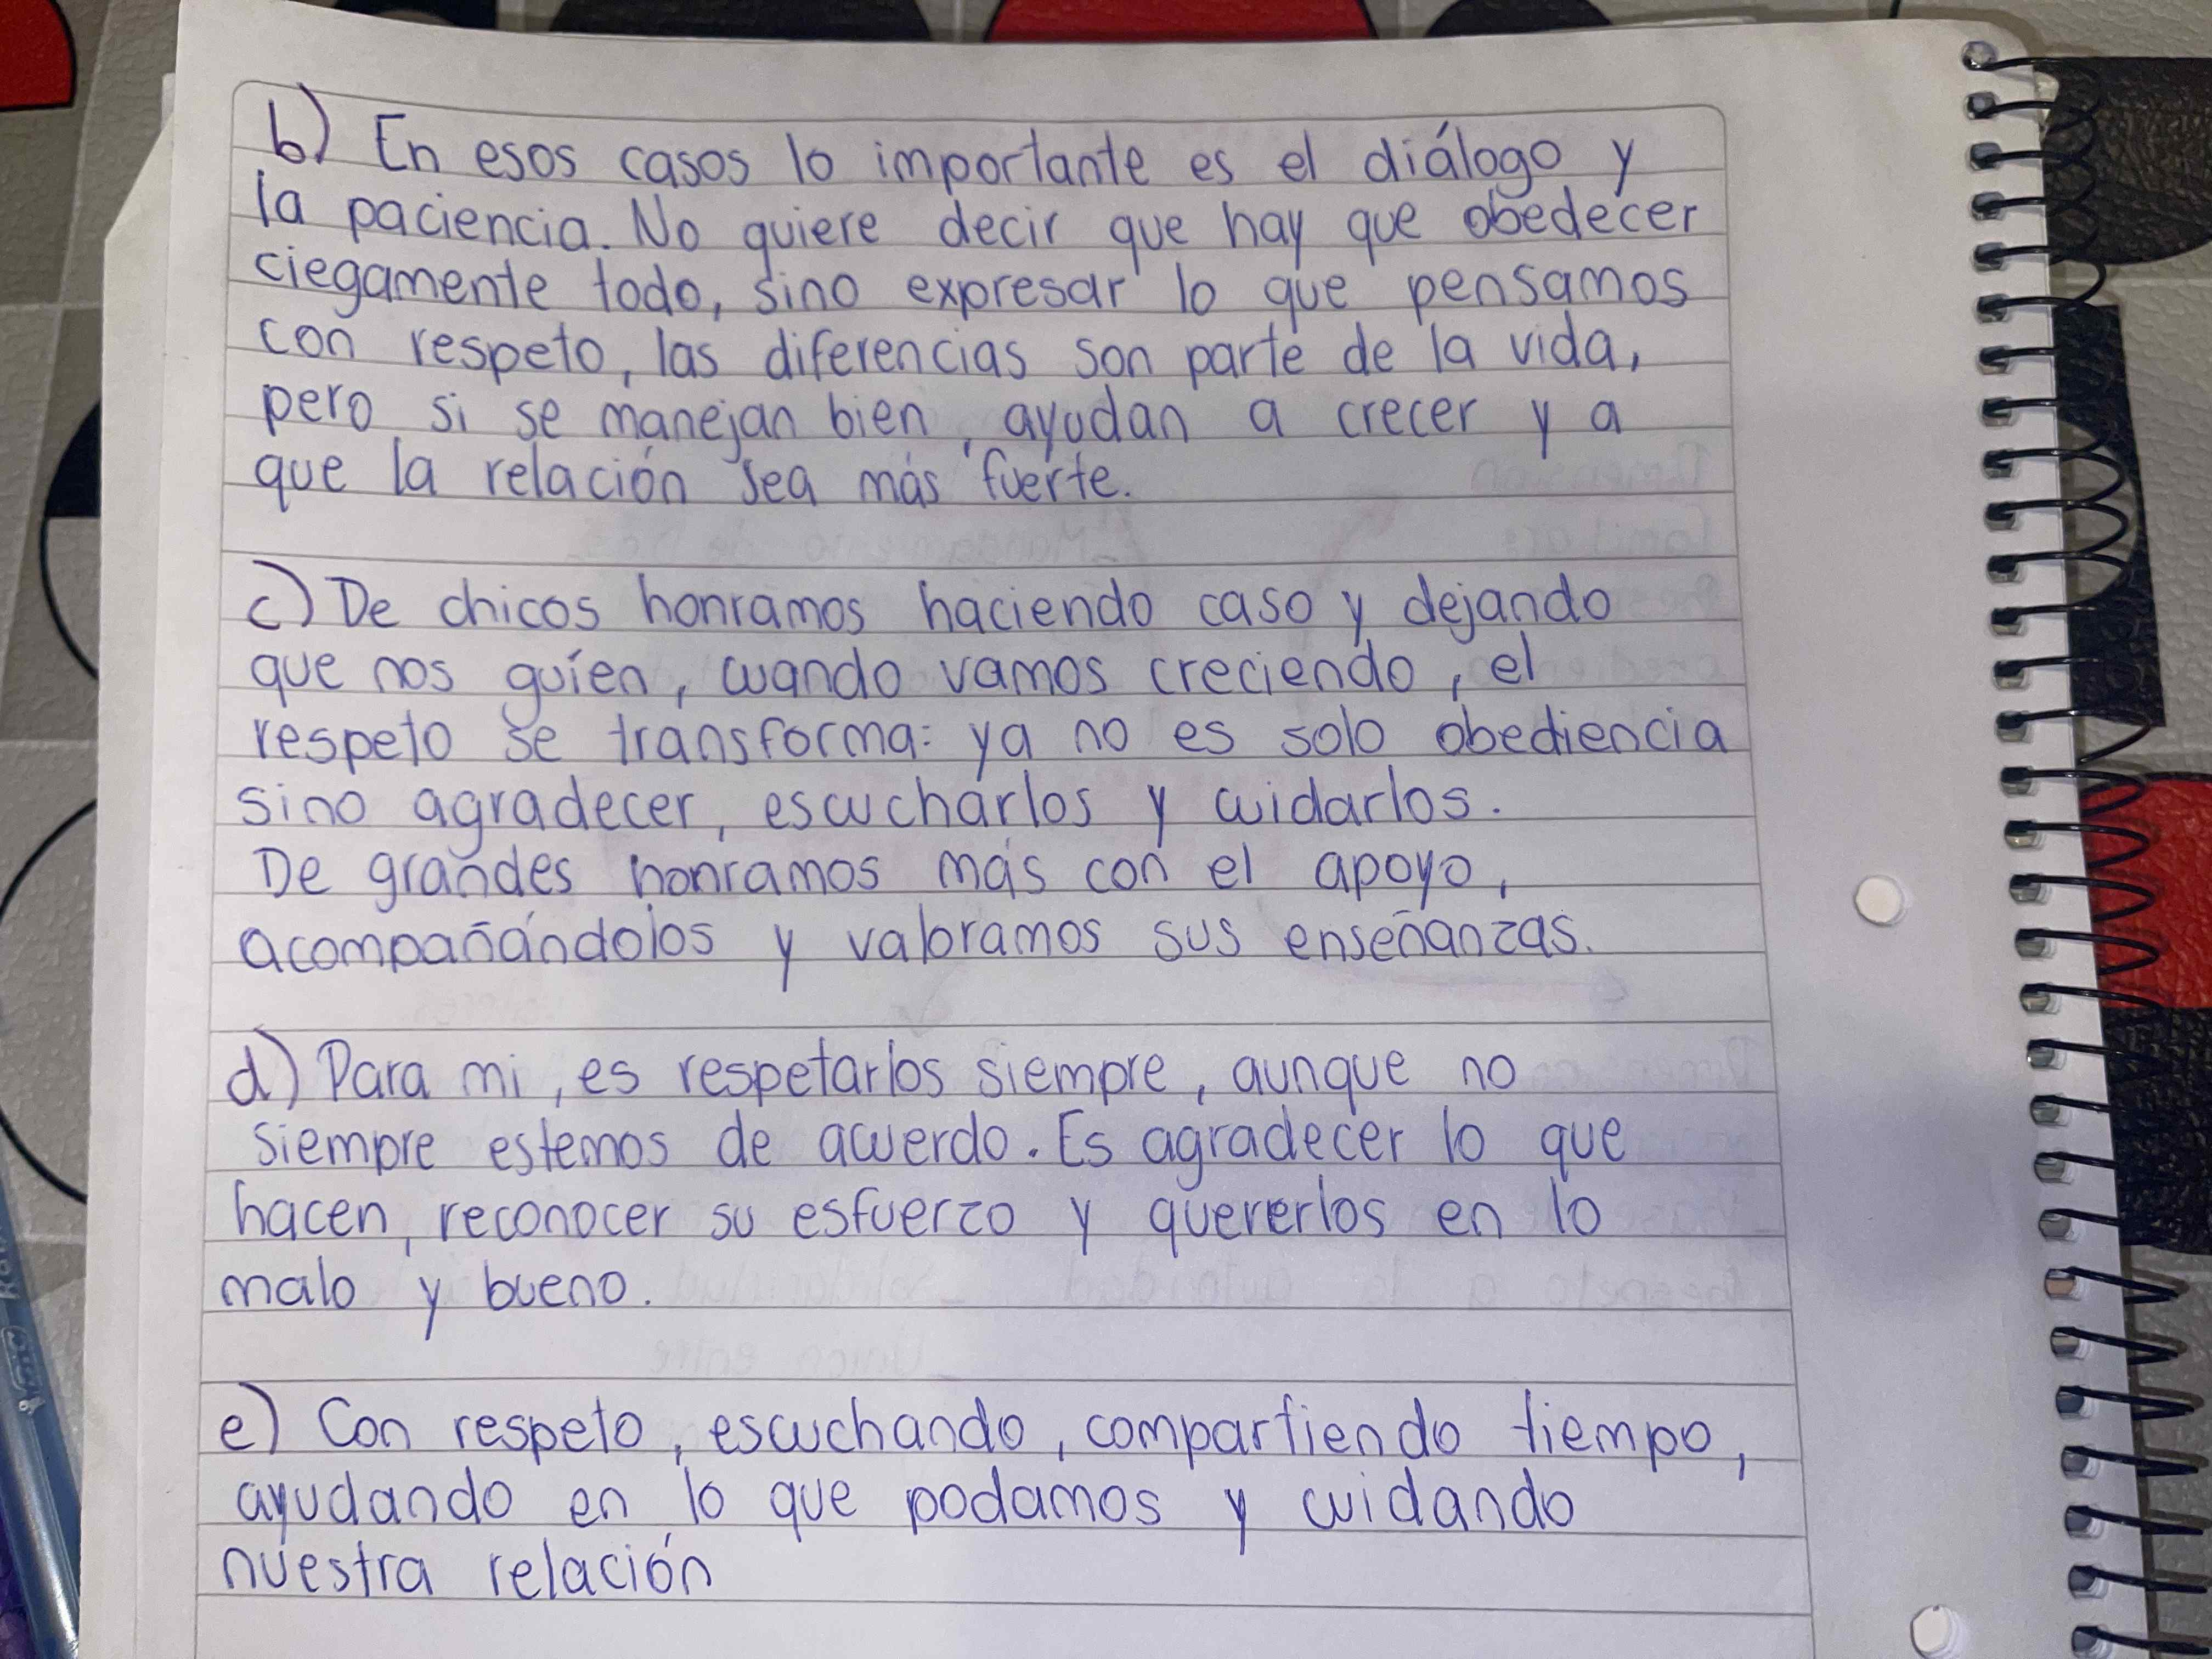 b) En esos casos lo importante es el diálogo y
la paciencia. No quiere decir que hay que obedecer
ciegamente todo, sino expresar lo que pensamos
con respeto, las diferencias son parte de la vida,
pero si se manejan bien, ayudan a crecer y a
que la relación sea más fuerte.
c) De chicos honramos haciendo caso y dejando
que nos guíen, cuando vamos creciendo, el
respeto se transforma: ya no es solo obediencia
sino agradecer, escucharlos y cuidarlos.
De grandes honramos más con el apoyo,
acompañándolos y valoramos sus enseñanzas.
d) Para mi, es respetarlos siempre, aunque no
siempre estemos de acuerdo. Es agradecer lo que
hacen, reconocer su esfuerzo y quererlos en lo
malo y bueno.
e) Con respeto, escuchando, compartiendo tiempo,
ayudando en lo que podamos y cuidando
nuestra relación